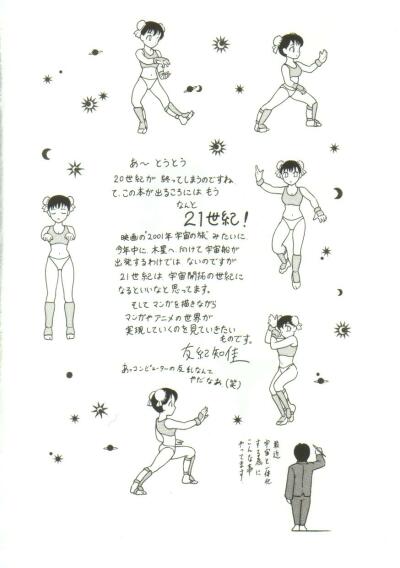 あ〜 とうとう
20世紀が 終ってしまうのですね
で、この本が出るころには もう
なんと
21世紀！
映画の"2001年宇宙の旅"みたいに
今年中に 木星へ向けて宇宙船が
出発するわけでは ないのですが
21世紀は 宇宙開拓の世紀に
なるといいなと 思ってます。
そして マンガを描きながら
マンガやアニメの世界が
実現していくのを見ていきたい
ものです。
友紀知佳
あっコンピューターの反乱なんて
やだなあ(笑)
最近
宇宙と一体化
する為に
こんな事
やってます！